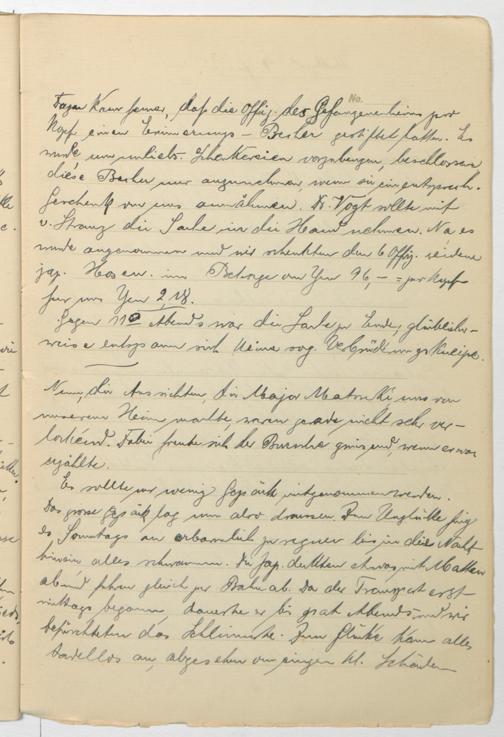 No.
Tagen kam ferner, daß die Offiz. des Gefangenenheims pro
Kopf einen Erinnerungs-Becher gestiftet hatten. Es
wurde, um unliebs. Schenkereien vorzubeugen, beschlossen
diese Becher nur anzunehmen, wenn sie ein entsprech.
Geschenk von uns annähmen. Dr. Vogt sollte mit
v. Strang die Sache in die Hand nehmen. Na es
wurde angenommen und wir schenkten den 6 Offiz. seidene
jap. Hosen im Betrage von Yen 96,- = pro Kopf
für uns Yen 2,18.
Gegen 11 Abends war die Sache zu Ende, glücklicher-
weise entspann sich keine sog. Verbrüderungskneipe.
Nun, die Aussichten, die Major Matsuki uns von
unserem Heim machte, waren gerade nicht sehr ver-
lockend. Dabei freute sich der Bursche grinsend, wenn er was
erzählte.
Es sollte nur wenig Gepäck mitgenommen werden.
Das grosse Gepäck lag uns also draussen. Zum Unglück fing
es Sonntags an erbärmlich zu regnen bis in die Nacht
hinein, alles schwamm. Die Jap. deckten etwas mit Matten
ab und fuhren gleich zur Bahn ab. Da der Transport erst
mittags begann, dauerte er bis spät Abends und wir
befürchteten das Schlimmste. Zum Glücke kam alles
tadellos an, abgesehen von einigen kl. Schäden